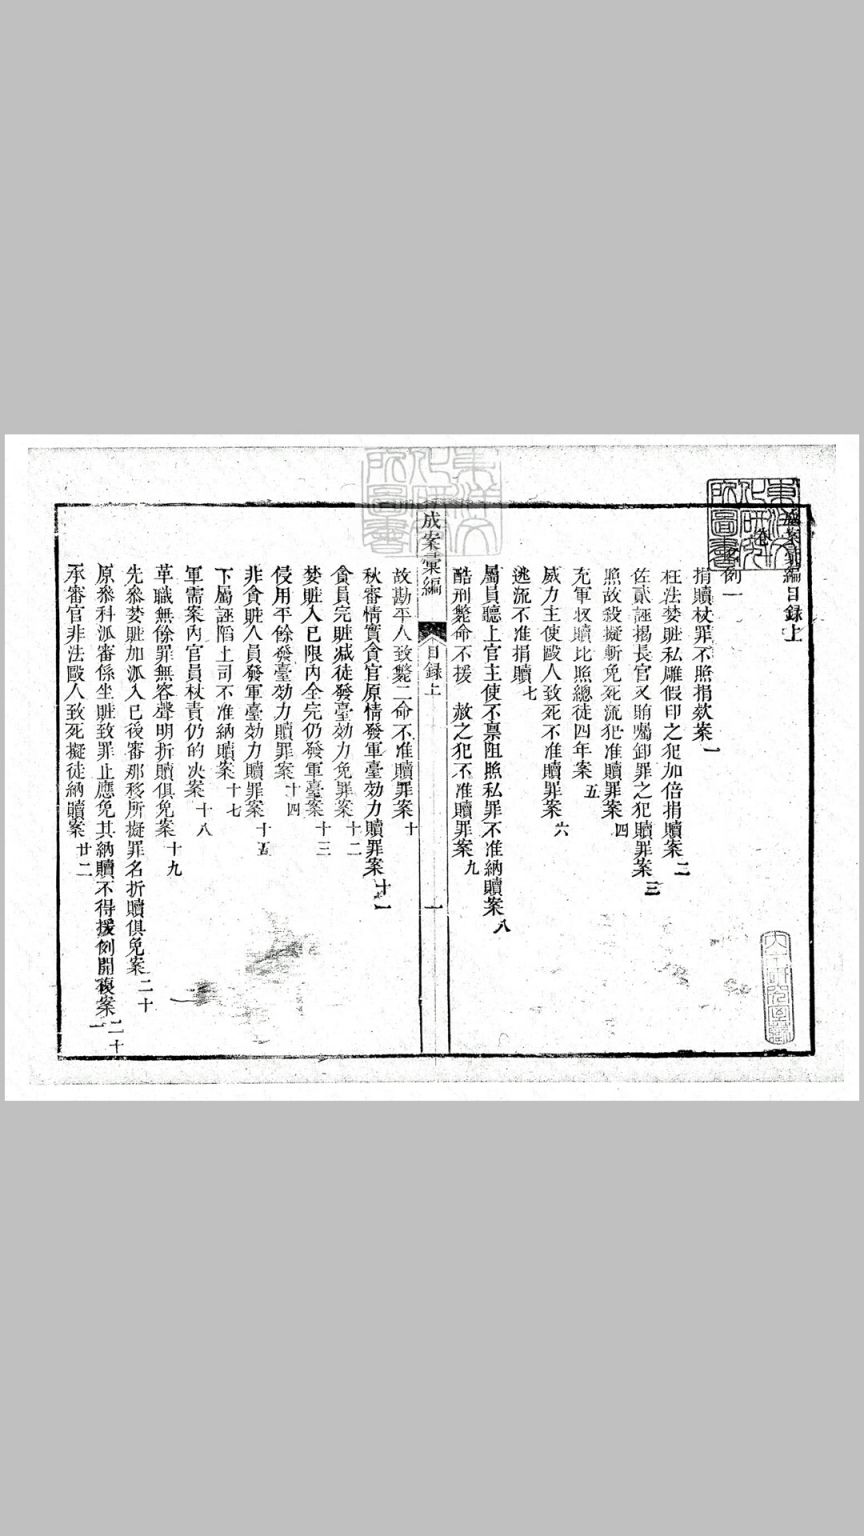 成案彙編目録上
例一
捐贖杖罪不照捐欵案一
枉法婪賍私雕假印之犯加倍捐贖案二
佐貳誣揭長官又賄囑卸罪之犯贖罪案三
照故殺擬斬免死流犯准贖罪案四
充軍收贖比照總徒四年案五
威力主使毆人致死不准贖罪案六
逃流不准捐贖七
屬員聽上官主使不禀阻照私罪不准納贖案八
酷刑斃命不援 赦之犯不准贖罪案九
成案彙編 目録上 一
故勘平人致斃二命不准贖罪案十
秋審情實貪官原情發軍臺効力贖罪案十一
貪員完賍减徒發臺効力免罪案十二
婪賍入已限內全完仍發軍臺案十三
侵用平餘發臺効力贖罪案十四
非貪賍人員發軍臺効力贖罪案十五
下屬誣陷土司不准納贖案十七
軍需案內官員杖責仍的决案十八
革職無餘罪無容聲明折贖俱免案十九
先叅婪賍加派入已後審那移所擬罪名折贖俱免案二十
原叅科派審係坐賍致罪止應免其納贖不得援例開複案二十一
承審官非法毆人致死擬徒納贖案廿二
東洋文化研究所圖書